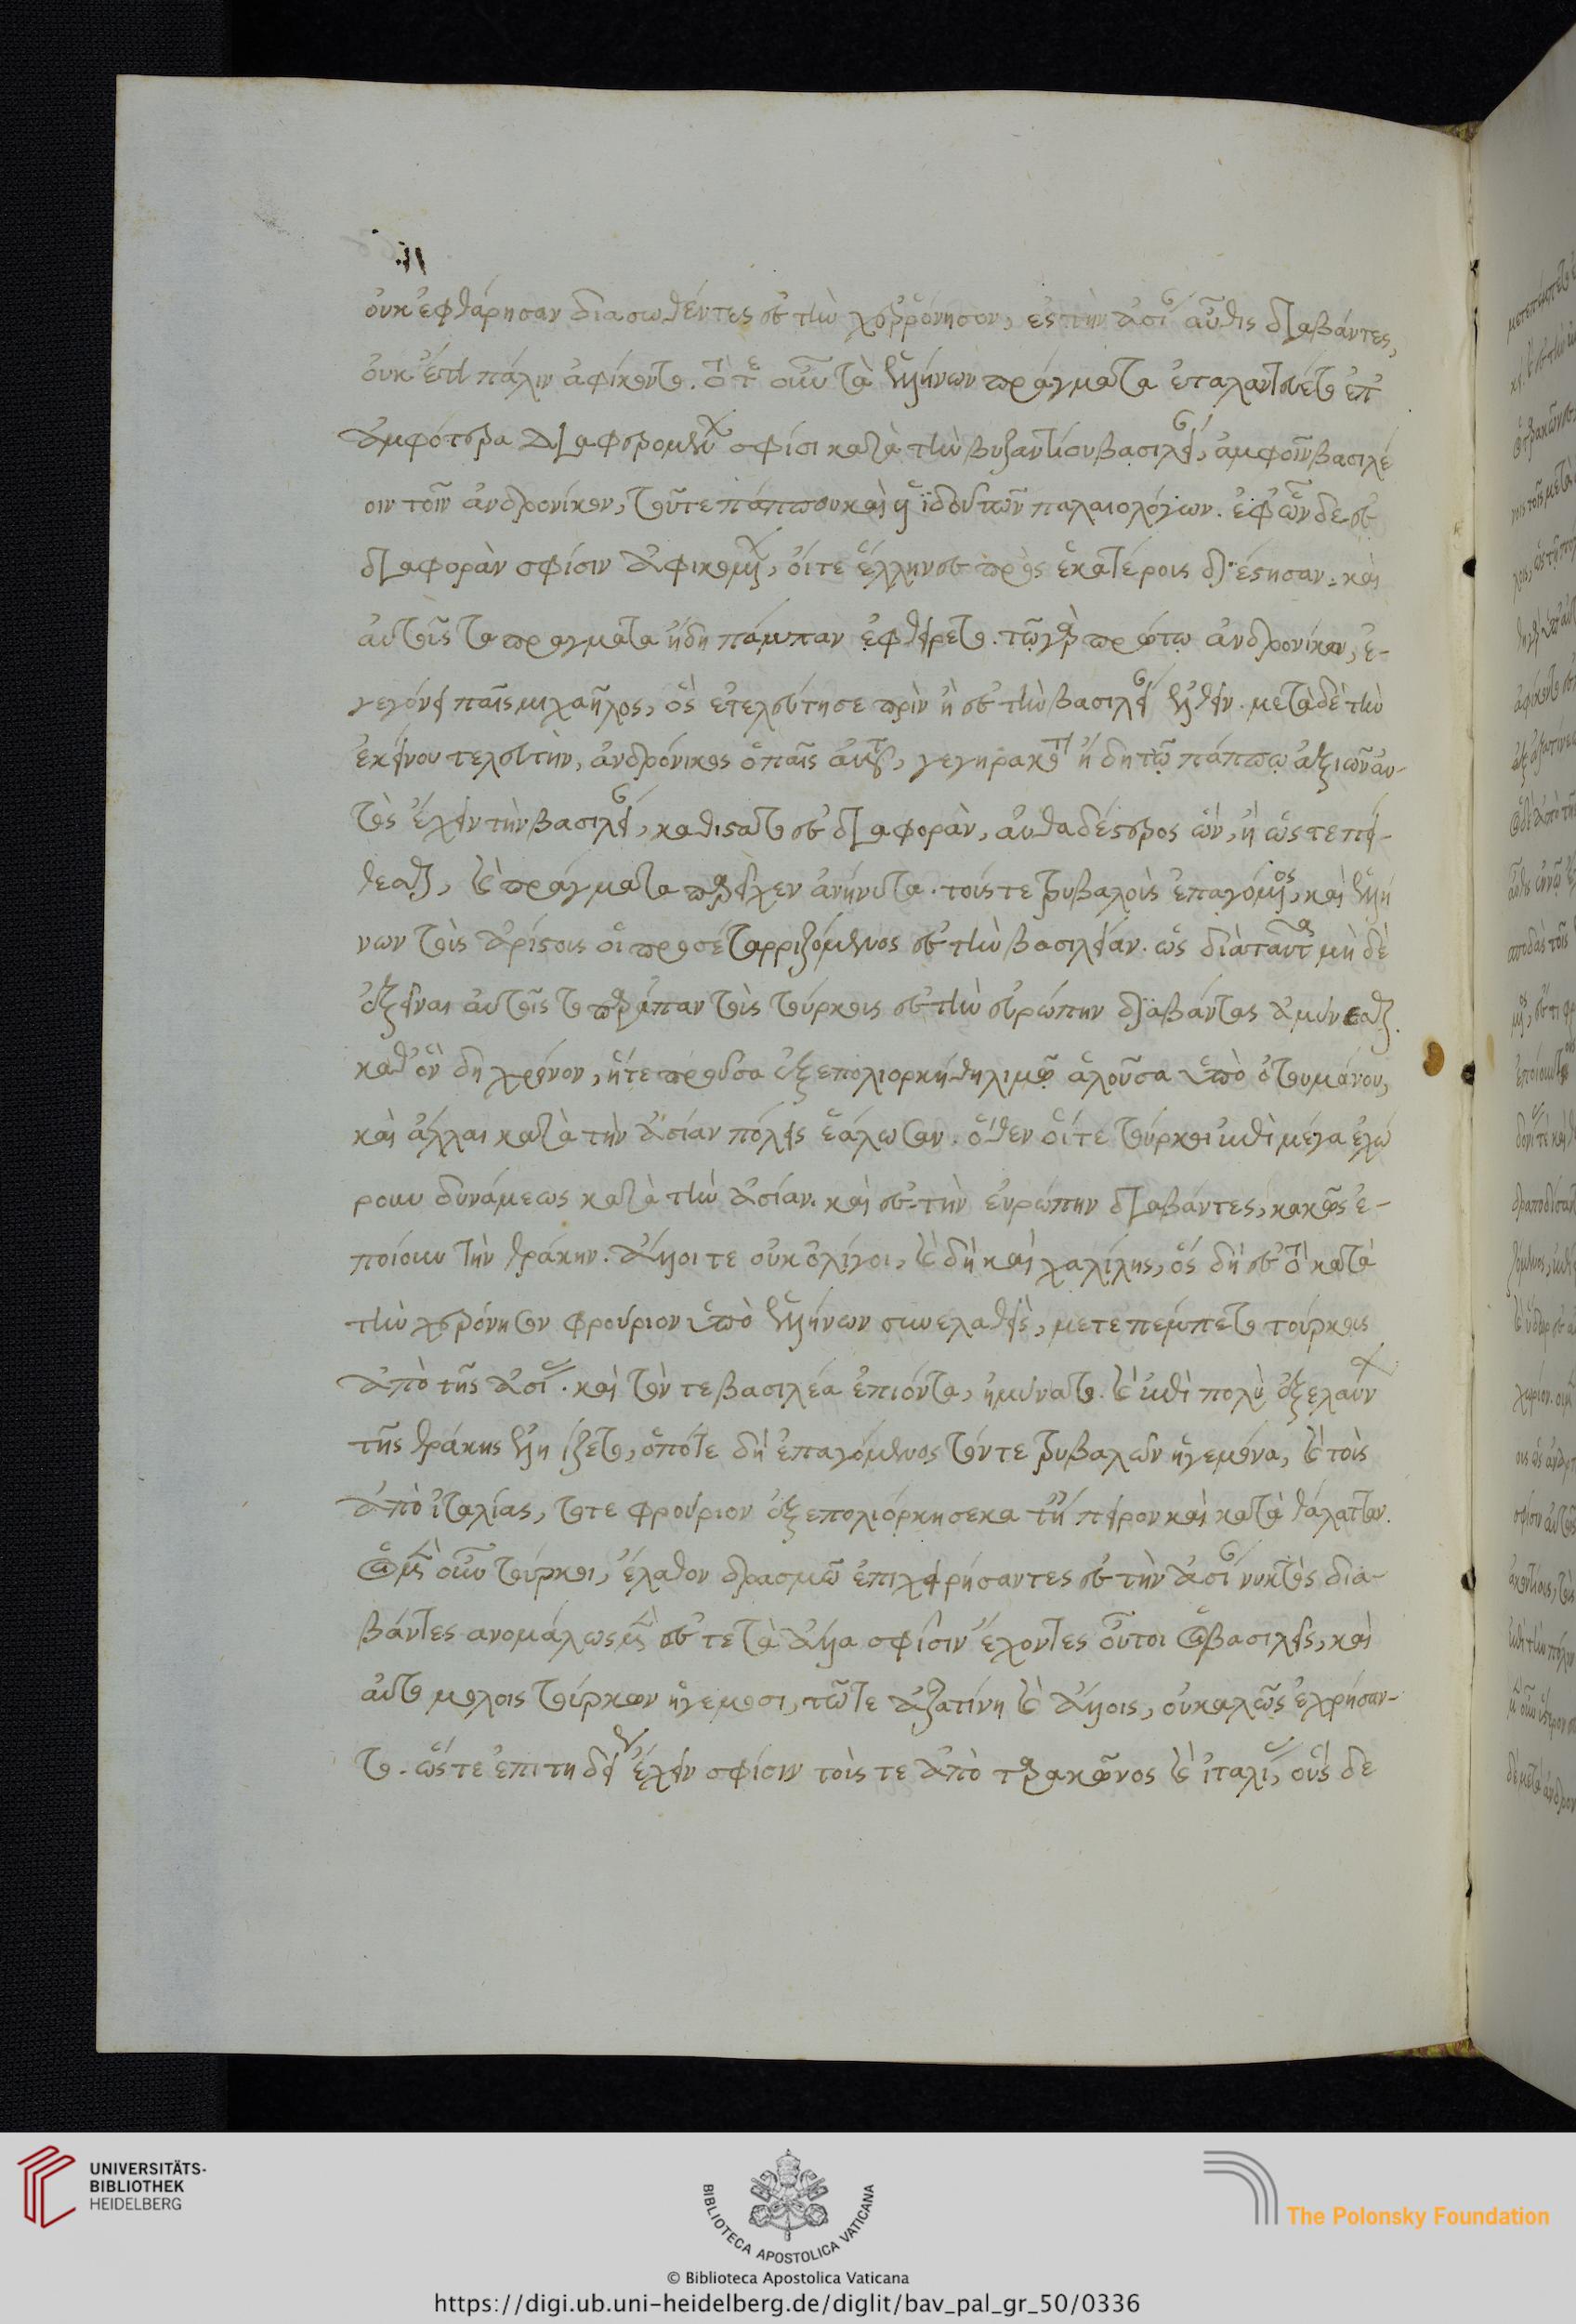 οὐκ ἐφθάρησαν διασωθέντες ἐς τὴν χερρόνησον, ἐς τὴν ἀσίαν αὖθις διαβάντες,
οὐκέτι πάλιν ἀφίκοντο. ὅτε οὖν τὰ ἑλλήνων πράγματα ἐταλαντεύετο ἐπ'
ἀμφότερα διαφερομένων σφίσι κατὰ τὴν βυζαντίου βασιλείαν, ἀμφοῖν βασιλέ
οιν τοῖν ἀνδρονίκοιν, τοῦτε πάππου καὶ υἱϊδοῦ τῶν παλαιολόγων. ἐφ' ὧν δὲ ἐς
διαφορὰν σφίσιν ἀφικομένων, οἵ τε ἕλληνες πρὸς ἑκατέροις διέστησαν. καὶ
αὐτοῖς τα πραγματα ἤδη πάμπαν ἐφθείρετο. τῷ γὰρ πρώτῳ ἀνδρονίκῳ, ἐ-
γεγόνει παῖς μιχαῆλος, ὃς ἐτελεύτησε πρὶν ἢ ἐς τὴν βασιλείαν ἐλθεῖν. μετὰ δὲ τὴν
ἐκείνου τελευτὴν, ἀνδρόνικος ὁ παῖς αὐτοῦ, γεγηρακότι ἤδη τῷ πάππῳ ἀξιῶν αὐ-
τὸς ἔχειν τὴν βασιλείαν, καθίστατο ἐς διαφορὰν, αὐθαδέστερος ὢν, ἢ ὥστε πεί-
θεσθαι, καὶ πράγματα παρεῖχεν ἀνήνυτα. τούς τε τριβαλοὺς ἐπαγόμενος, καὶ ἑλλή
νων τοῖς ἀρίστοις οἷ προσέταρριζόμενος ἐς τὴν βασιλείαν. ὡς διὰ ταῦτα μὴ δὲ
ἐξεῖναι αὐτοῖς τοπαράπαν τοὺς τούρκους ἐς τὴν εὐρώπην διαβάντας ἀμύνεσθαι.
καθ' ὃν δὴ χρόνον, ἥ τε προῦσα ἐξεπολιορκήθη λιμῷ ἁλοῦσα ὑπὸ ὀτουμάνου,
καὶ ἄλλαι κατὰ τὴν ἀσίαν πόλεις ἑάλωσαν. ὅθεν οἵ τε τοῦρκοι ἐπὶ μέγα ἐχώ
ρουν δυνάμεως κατὰ τὴν ἀσίαν. καὶ ἐς τὴν εὐρώπην διαβάντες, κακῶς ἐ-
ποίουν τὴν θράκην. ἄλλοι τε οὐκ ὀλίγοι, καὶ δὴ καὶ χαλίλης, ὃς δὴ ἐς τὸ κατὰ
τὴν χερόνησον φρούριον ὑπὸ ἑλλήνων συνελαθεὶς, μετεπέμπετο τούρκους
ἀπὸ τῆς ἀσίας. καὶ τόν τε βασιλέα ἐπιόντα, ἠμύνατο. καὶ ἐπὶ πολὺ ἐξελαύνων
τῆς θράκης ἐληίζετο, ὁπότε δὴ ἐπαγόμενος τόν τε τριβαλῶν ἡγεμόνα, καὶ τοὺς
ἀπὸ ἰταλίας, τό τε φρούριον ἐξεπολιόρκησε κατ' ἤπειρον καὶ κατὰ θάλατταν.
οἱ μὲν οὖν τοῦρκοι, ἔλαθον δρασμῷ ἐπιχειρήσαντες ἐς τὴν ἀσίαν νυκτὸς δια-
βάντες ανομάλως μὲν ἐς τε τὰ ἄλλα σφίσιν ἔχοντες οὗτοι οἱ βασιλεῖς, καὶ
αὐτομόλοις τούρκων ἡγεμόσι, τῷ τε ἀζατίνῃ καὶ ἄλλοις, οὐ καλῶς ἐχρήσαν-
το. ὥστε ἐπιτηδείως ἔχειν σφίσιν τοῖς τε ἀπὸ ταρακῶνος καὶ ἰταλίας, οὓς δε